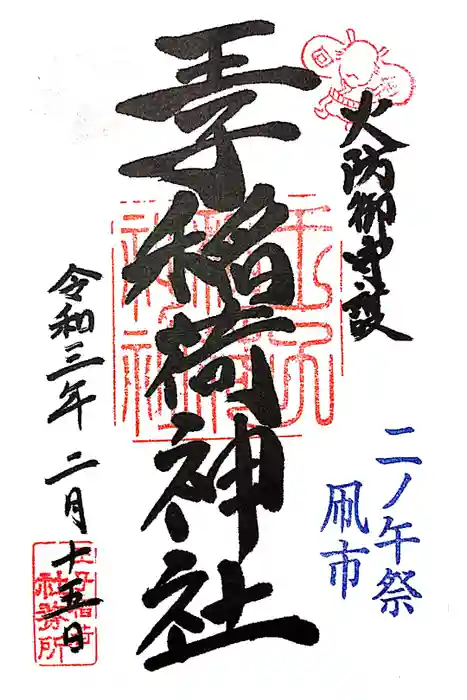 火防御守護
王子稲荷神社
王子稲荷神社
令和三年二月十五日
王子稲荷
社務所
二ノ午祭
凧市